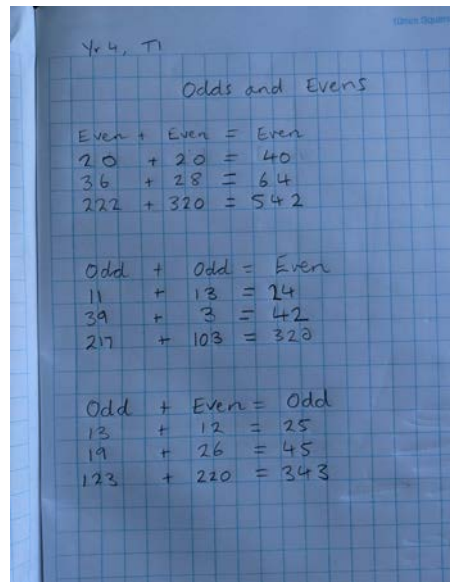 10mm Square
Yr 4, T1
Odds and Evens
Even + Even = Even
20 + 20 = 40
36 + 28 = 64
222 + 320 = 542
Odd + Odd = Even
11 + 13 = 24
39 + 3 = 42
217 + 103 = 320
Odd + Even = Odd
13 + 12 = 25
19 + 26 = 45
123 + 220 = 343